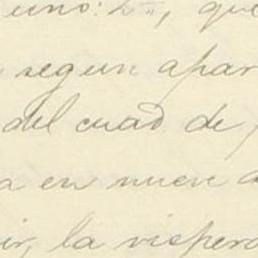 uno: 2ª, que
segun apar
del cuad de
a en nueve d
ir, la vispera